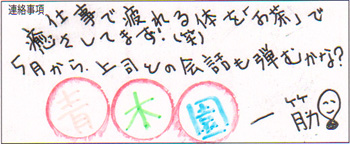 連絡事項
仕事で疲れる体を「お茶」で
癒をしてます!(笑)
5月から、上司との会話も弾むかな?
青 木 園
一筋